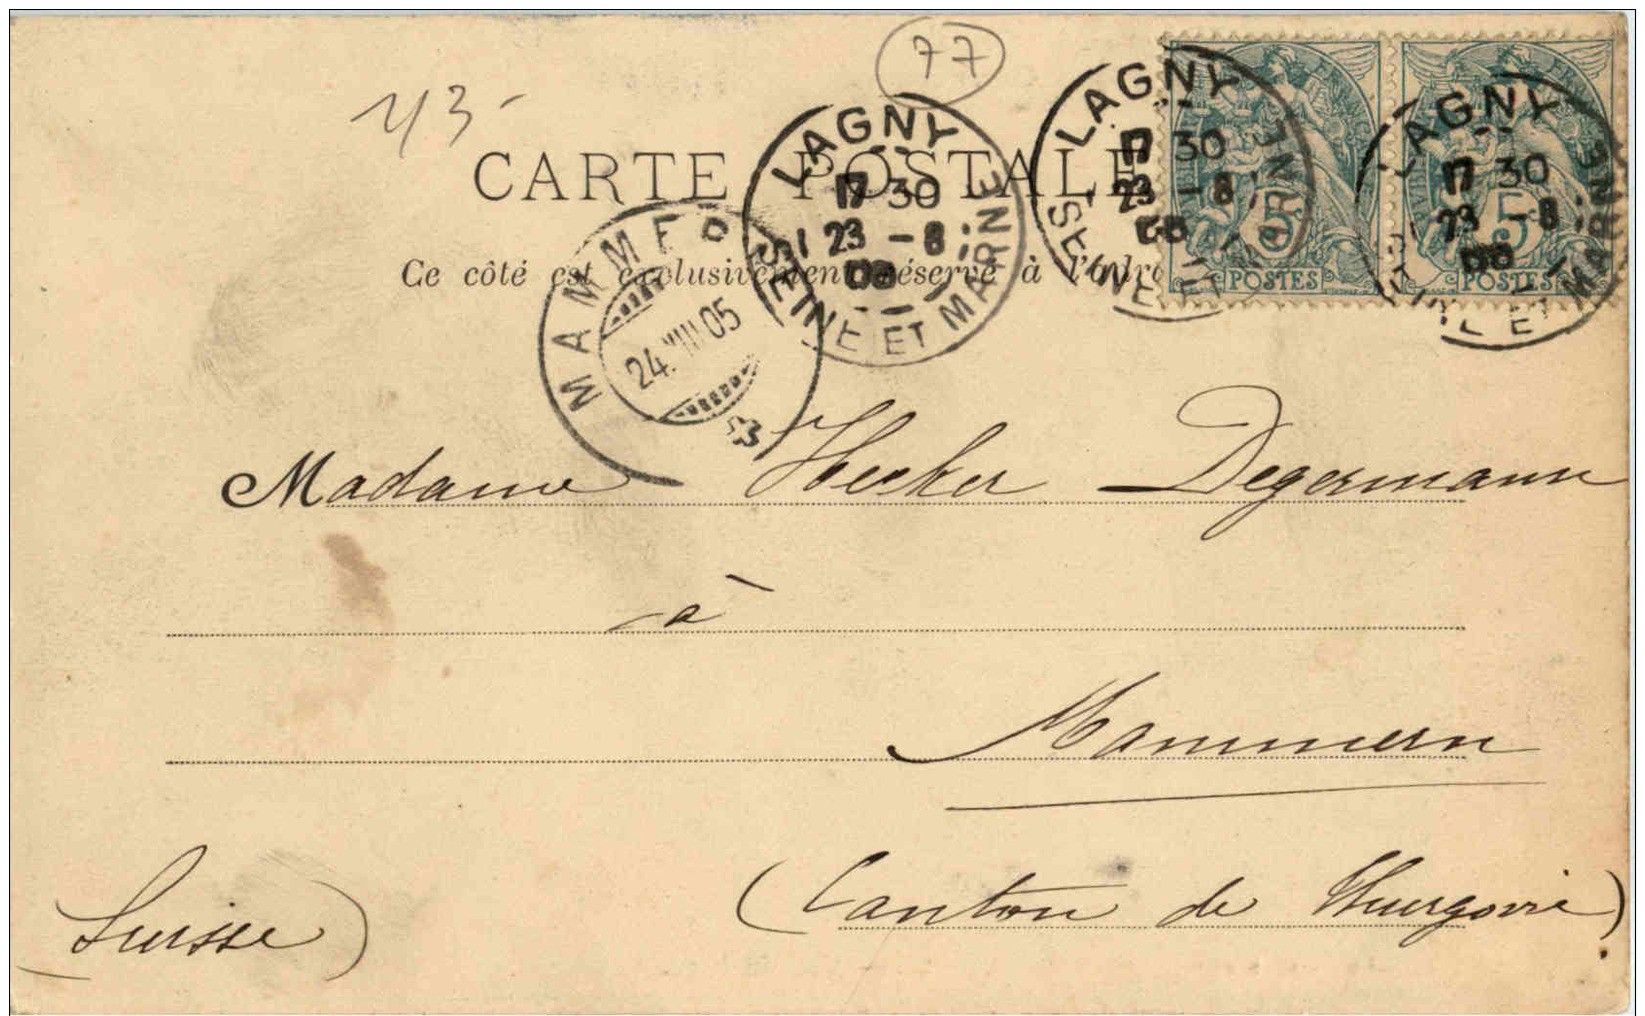 77
43-
CARTE POSTALE
Ce côté est exclusivement réservé à l'adre
LAGNY
17 30
23 - 8
05
SEINE ET MARNE
LAGNY
17 30
23 - 8
SEINE ET MARNE
LAGNY
17 30
23 - 8
SEINE ET MARNE
5
POSTES
5
POSTES
MAMMER
24.VIII.05
Madame Hecker Degermann
à
Mammern
(Canton de Thurgovie)
(Suisse)